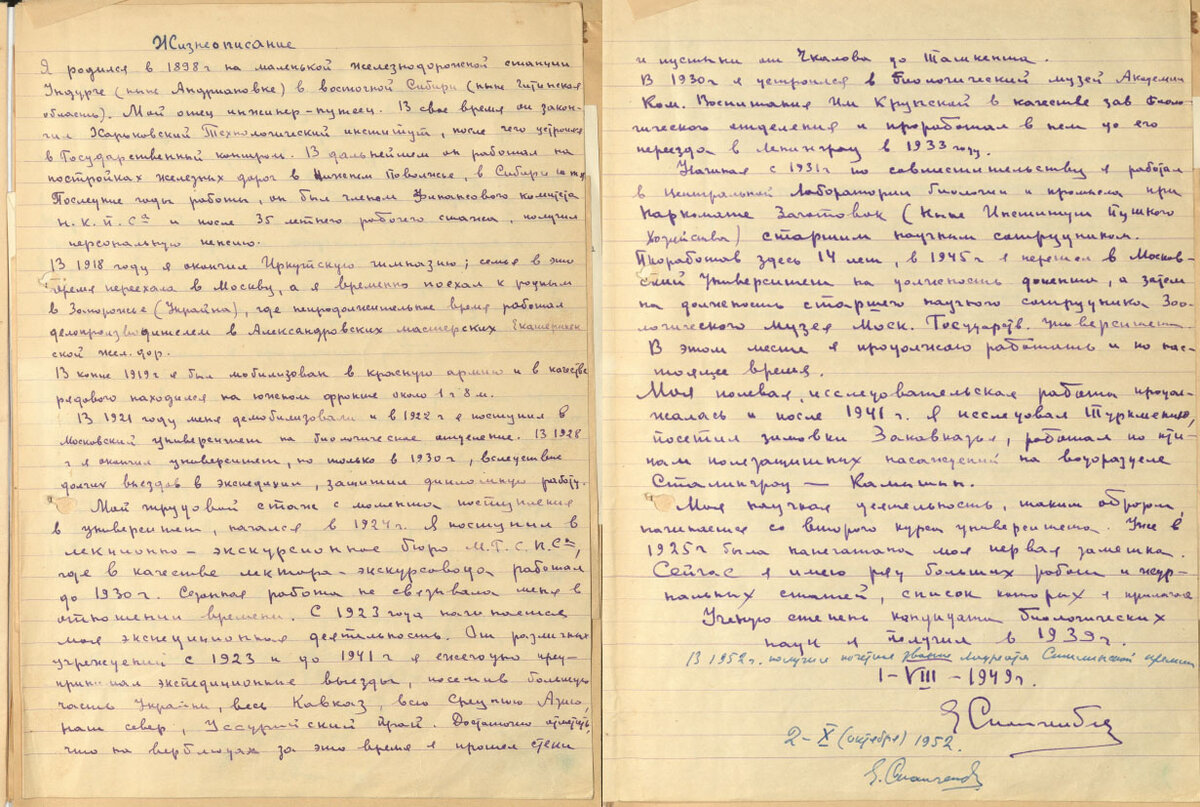 Жизнеописание
Я родился в 1898 г на маленькой железнодорожной станции
Ундурге (ныне Андриановке) в восточной Сибири (ныне Читинская
область). Мой отец инженер-путеец. В свое время он закон-
чил Харьковский Технологический институт, после чего устроился
в Государственный контроль. В дальнейшем он работал на
постройках железных дорог в Нижнем Поволжье, в Сибири и т.д.
Последние годы работы, он был членом Финансового комитета
Н.К.П.Са и после 35 летнего рабочего стажа, получил
персональную пенсию.
В 1918 году я окончил Иркутскую гимназию; семья в это
время переехала в Москву, а я временно поехал к родным
в Запорожье (Украйна), где непродолжительное время работал
делопроизводителем в Александровских мастерских Екатеринин-
ской жел. дор.
В конце 1919 г я был мобилизован в красную армию и в качестве
рядового находился на южном фронте около 1 г 8 м.
В 1921 году меня демобилизовали и в 1922 г я поступил в
Московский университет на биологическое отделение. В 1928
г я окончил университет, но только в 1930 г, вследствие
долгих выездов в экспедиции, защитил дипломную работу.
Мой трудовой стаж с момента поступления
в университет, начался в 1924 г. Я поступил в
лекционно-экскурсионное бюро М.Г.С.П.Са,
где в качестве лектора-экскурсовода работал
до 1930 г. Сезонная работа не связывала меня в
отношении времени. С 1923 года начинается
моя экспедиционная деятельность. От различных
учреждений с 1923 и до 1941 г я ежегодно пред-
принимал экспедиционные выезды, посетив большую
часть Украйны, весь Кавказ, всю Среднюю Азию,
наш север, Уссурийский край. Достаточно отметить,
что на верблюдах за это время я прошел степи
и пустыни от Чкалова до Ташкента.
В 1930 г я устроился в биологический музей Академии
Ком. Воспитания Им Крупской в качестве зав биоло-
гического отделения и проработал в нем до его
переезда в Ленинград в 1933 году.
Начиная с 1931 г по совместительству я работал
в Центральной Лаборатории биологии и промысла при
Наркомате Заготовок (ныне Институт Пушного
Хозяйства) старшим научным сотрудником.
Проработав здесь 14 лет, в 1945 г я перешел в Москов-
ский Университет на должность доцента, а затем
на должность старшего научного сотрудника Зоо-
логического музея Моск. Государств. Университета.
В этом месте я продолжаю работать и по нас-
тоящее время.
Моя полевая, исследовательская работа продол-
жалась и после 1941 г. Я исследовал Туркмению,
посетил зимовки Закавказья, работал по пти-
цам полезащитных насаждений на водоразделе
Сталинград — Камышин.
Моя научная деятельность, таким образом,
начинается со второго курса университета. Уже в
1925 г была напечатана моя первая заметка.
Сейчас я имею ряд больших работ и жур-
нальных статей, список которых я прилагаю
Ученую степень кандидата биологических
наук я получил в 1939 г.
В 1952 г. получил почетное звание Лауреата Сталинской премии
1-VIII-1949 г.
2-X (октября) 1952.